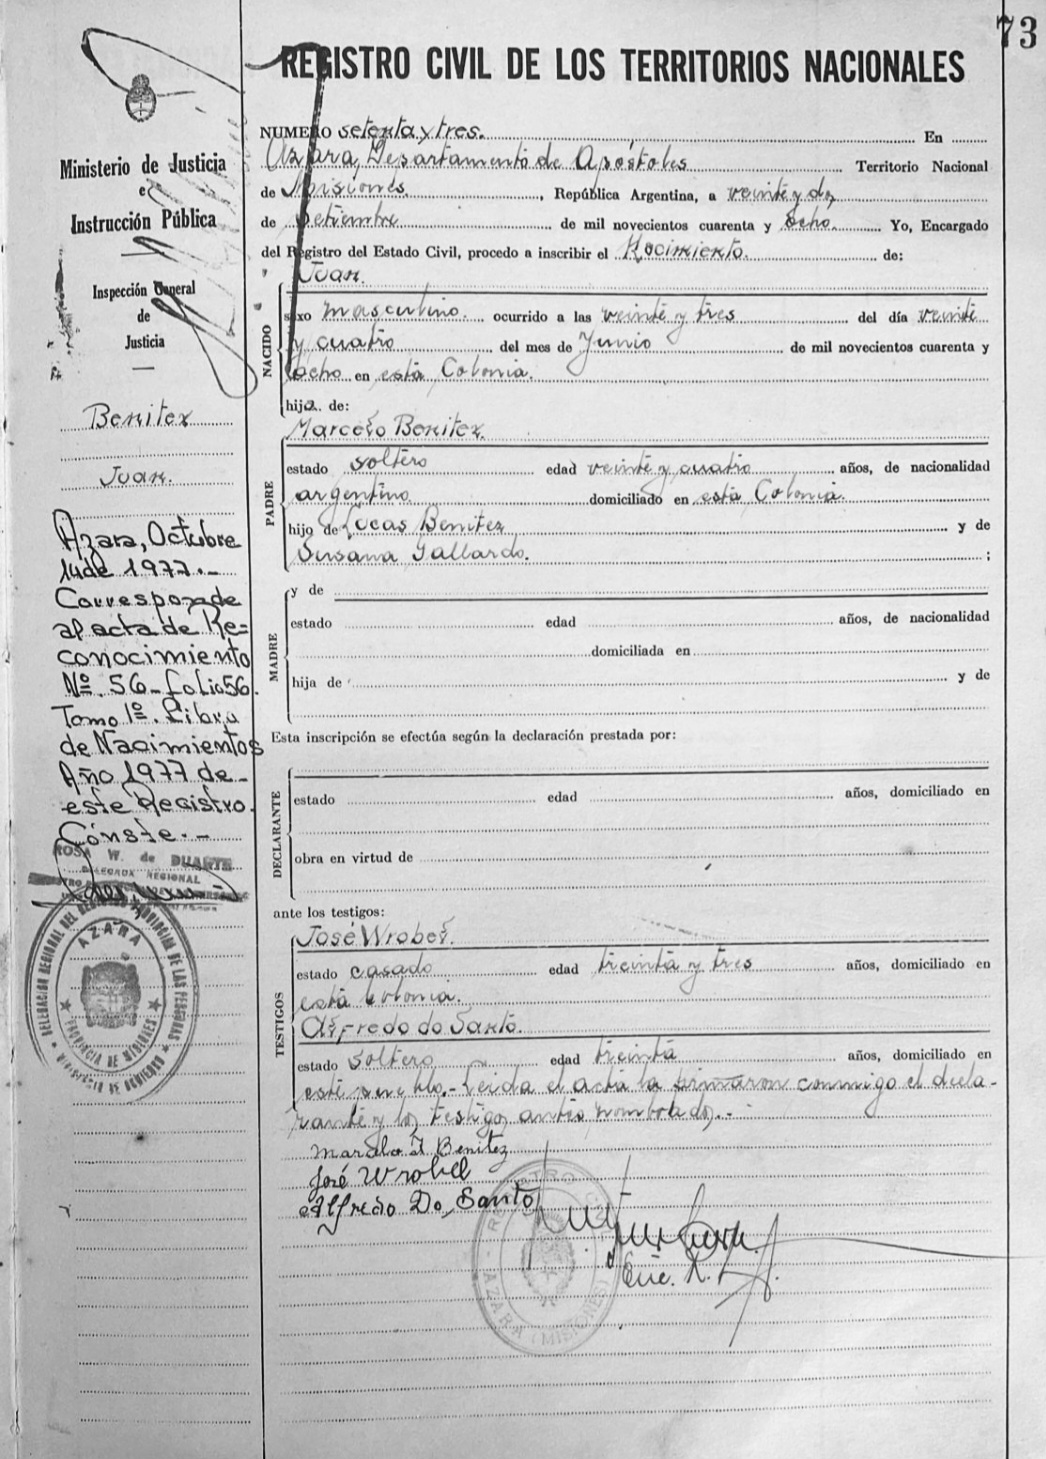 73
REGISTRO CIVIL DE LOS TERRITORIOS NACIONALES
Ministerio de Justicia
e
Instrucción Pública
Inspección General
de
Justicia
Benitez
Juan.
Azara, Octubre
14 de 1977.-
Corresponde
al acta de Re=
conocimiento
Nº. 56-folio 56.
Tomo 1º. Libro
de Nacimientos
Año 1977 de-
este Registro.
Cónste.-
ROSA W. de DUARTE
DELEGADA REGIONAL
DELEGACIÓN REGIONAL DEL REGISTRO PROVINCIAL DE LAS PERSONAS
AZARA
PROVINCIA DE MISIONES
MINISTERIO DE GOBIERNO
NUMERO setenta y tres. En
Azara, Departamento de Apóstoles Territorio Nacional
de Misiones. , República Argentina, a veinte y dos
de Setiembre de mil novecientos cuarenta y ocho. Yo, Encargado
del Registro del Estado Civil, procedo a inscribir el Nacimiento. de:
NACIDO
Juan.
sexo masculino. ocurrido a las veinte y tres del día veinte
y cuatro del mes de Junio de mil novecientos cuarenta y
ocho en esta Colonia.
hijo de:
PADRE
Marcelo Benitez.
estado soltero edad veinte y cuatro años, de nacionalidad
argentino domiciliado en esta Colonia.
hijo de Lucas Benitez y de
Susana Gallardo. ;
MADRE
y de
estado edad años, de nacionalidad
domiciliada en
hija de y de
Esta inscripción se efectúa según la declaración prestada por:
DECLARANTE
estado edad años, domiciliado en
obra en virtud de
ante los testigos:
TESTIGOS
José Wrobel.
estado casado edad treinta y tres años, domiciliado en
esta Colonia.
Alfredo do Santo.
estado soltero edad treinta años, domiciliado en
este pueblo.- Leida el acta la firmaron conmigo el decla-
rante y los testigos antes nombrados.-
Marcelo Benitez
José Wrobel
Alfredo Do Santo
Enc. R.
REGISTRO CIVIL
AZARA (MISIONES)